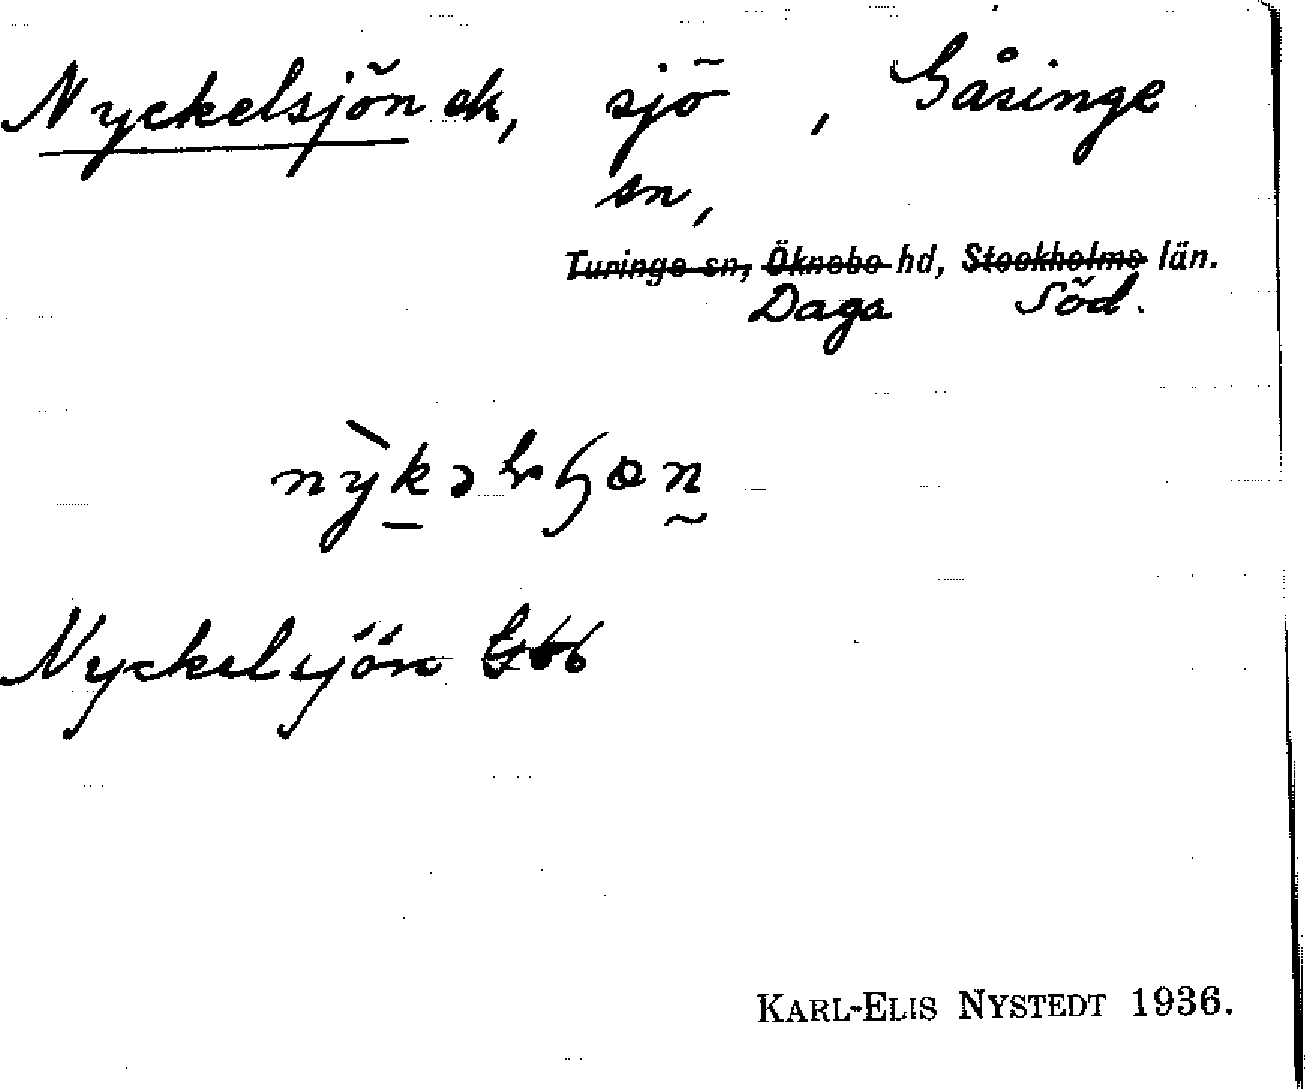 Nyckelsjön ek, sjö, Gåsinge
sn,
Turinge sn, Öknebo hd, Stockholms län.
Daga Söd.
Nyckelsjön
KARL-ELIS NYSTEDT 1936.